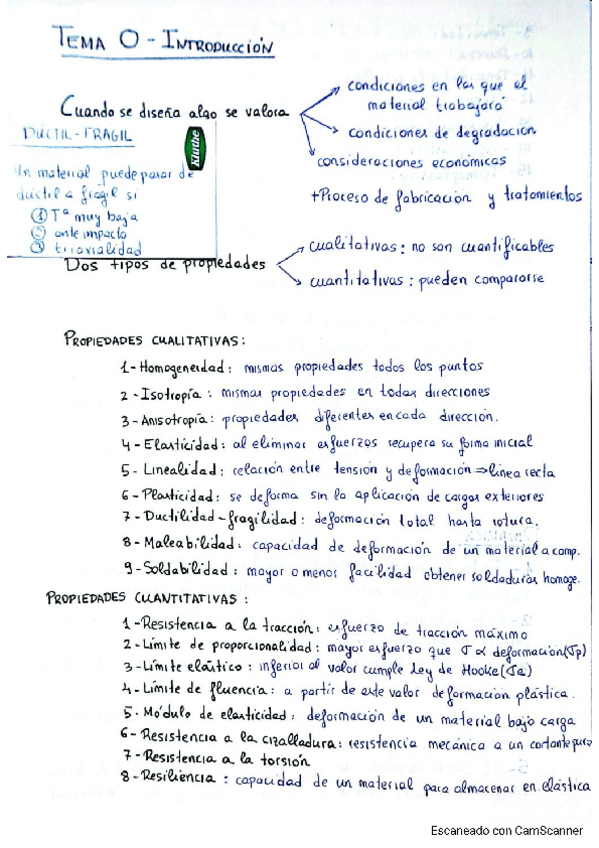 TEMA 0 - INTRODUCCIÓN
Cuando se diseña algo se valora
condiciones en las que el
material trabajará
condiciones de degradación
consideraciones económicas
+Proceso de fabricación y tratamientos
DÚCTIL-FRAGIL
Kluthe
Un material puede pasar de
dúctil a frágil si
① Tª muy baja
② ante impacto
③ triaxialidad
Dos tipos de propiedades
cualitativas: no son cuantificables
cuantitativas: pueden compararse
PROPIEDADES CUALITATIVAS:
1-Homogeneidad: mismas propiedades todos los puntos
2-Isotropía: mismas propiedades en todas direcciones
3-Anisotropía: propiedades diferentes en cada dirección.
4-Elasticidad: al eliminar esfuerzos recupera su forma inicial
5-Linealidad: relación entre tensión y deformación⇒línea recta
6-Plasticidad: se deforma sin la aplicación de cargas exteriores
7-Ductilidad-fragilidad: deformación total hasta rotura.
8-Maleabilidad: capacidad de deformación de un material a comp.
9-Soldabilidad: mayor o menos facilidad obtener soldaduras homoge.
PROPIEDADES CUANTITATIVAS:
1-Resistencia a la tracción: esfuerzo de tracción máximo
2-Límite de proporcionalidad: mayor esfuerzo que σ α deformación(σp)
3-Límite elástico: inferior al valor cumple Ley de Hooke(σe)
4-Límite de fluencia: a partir de este valor deformación plástica.
5-Módulo de elasticidad: deformación de un material bajo carga
6-Resistencia a la cizalladura: resistencia mecánica a un cortante puro
7-Resistencia a la torsión
8-Resiliencia: capacidad de un material para almacenar en.elástica
Escaneado con CamScanner